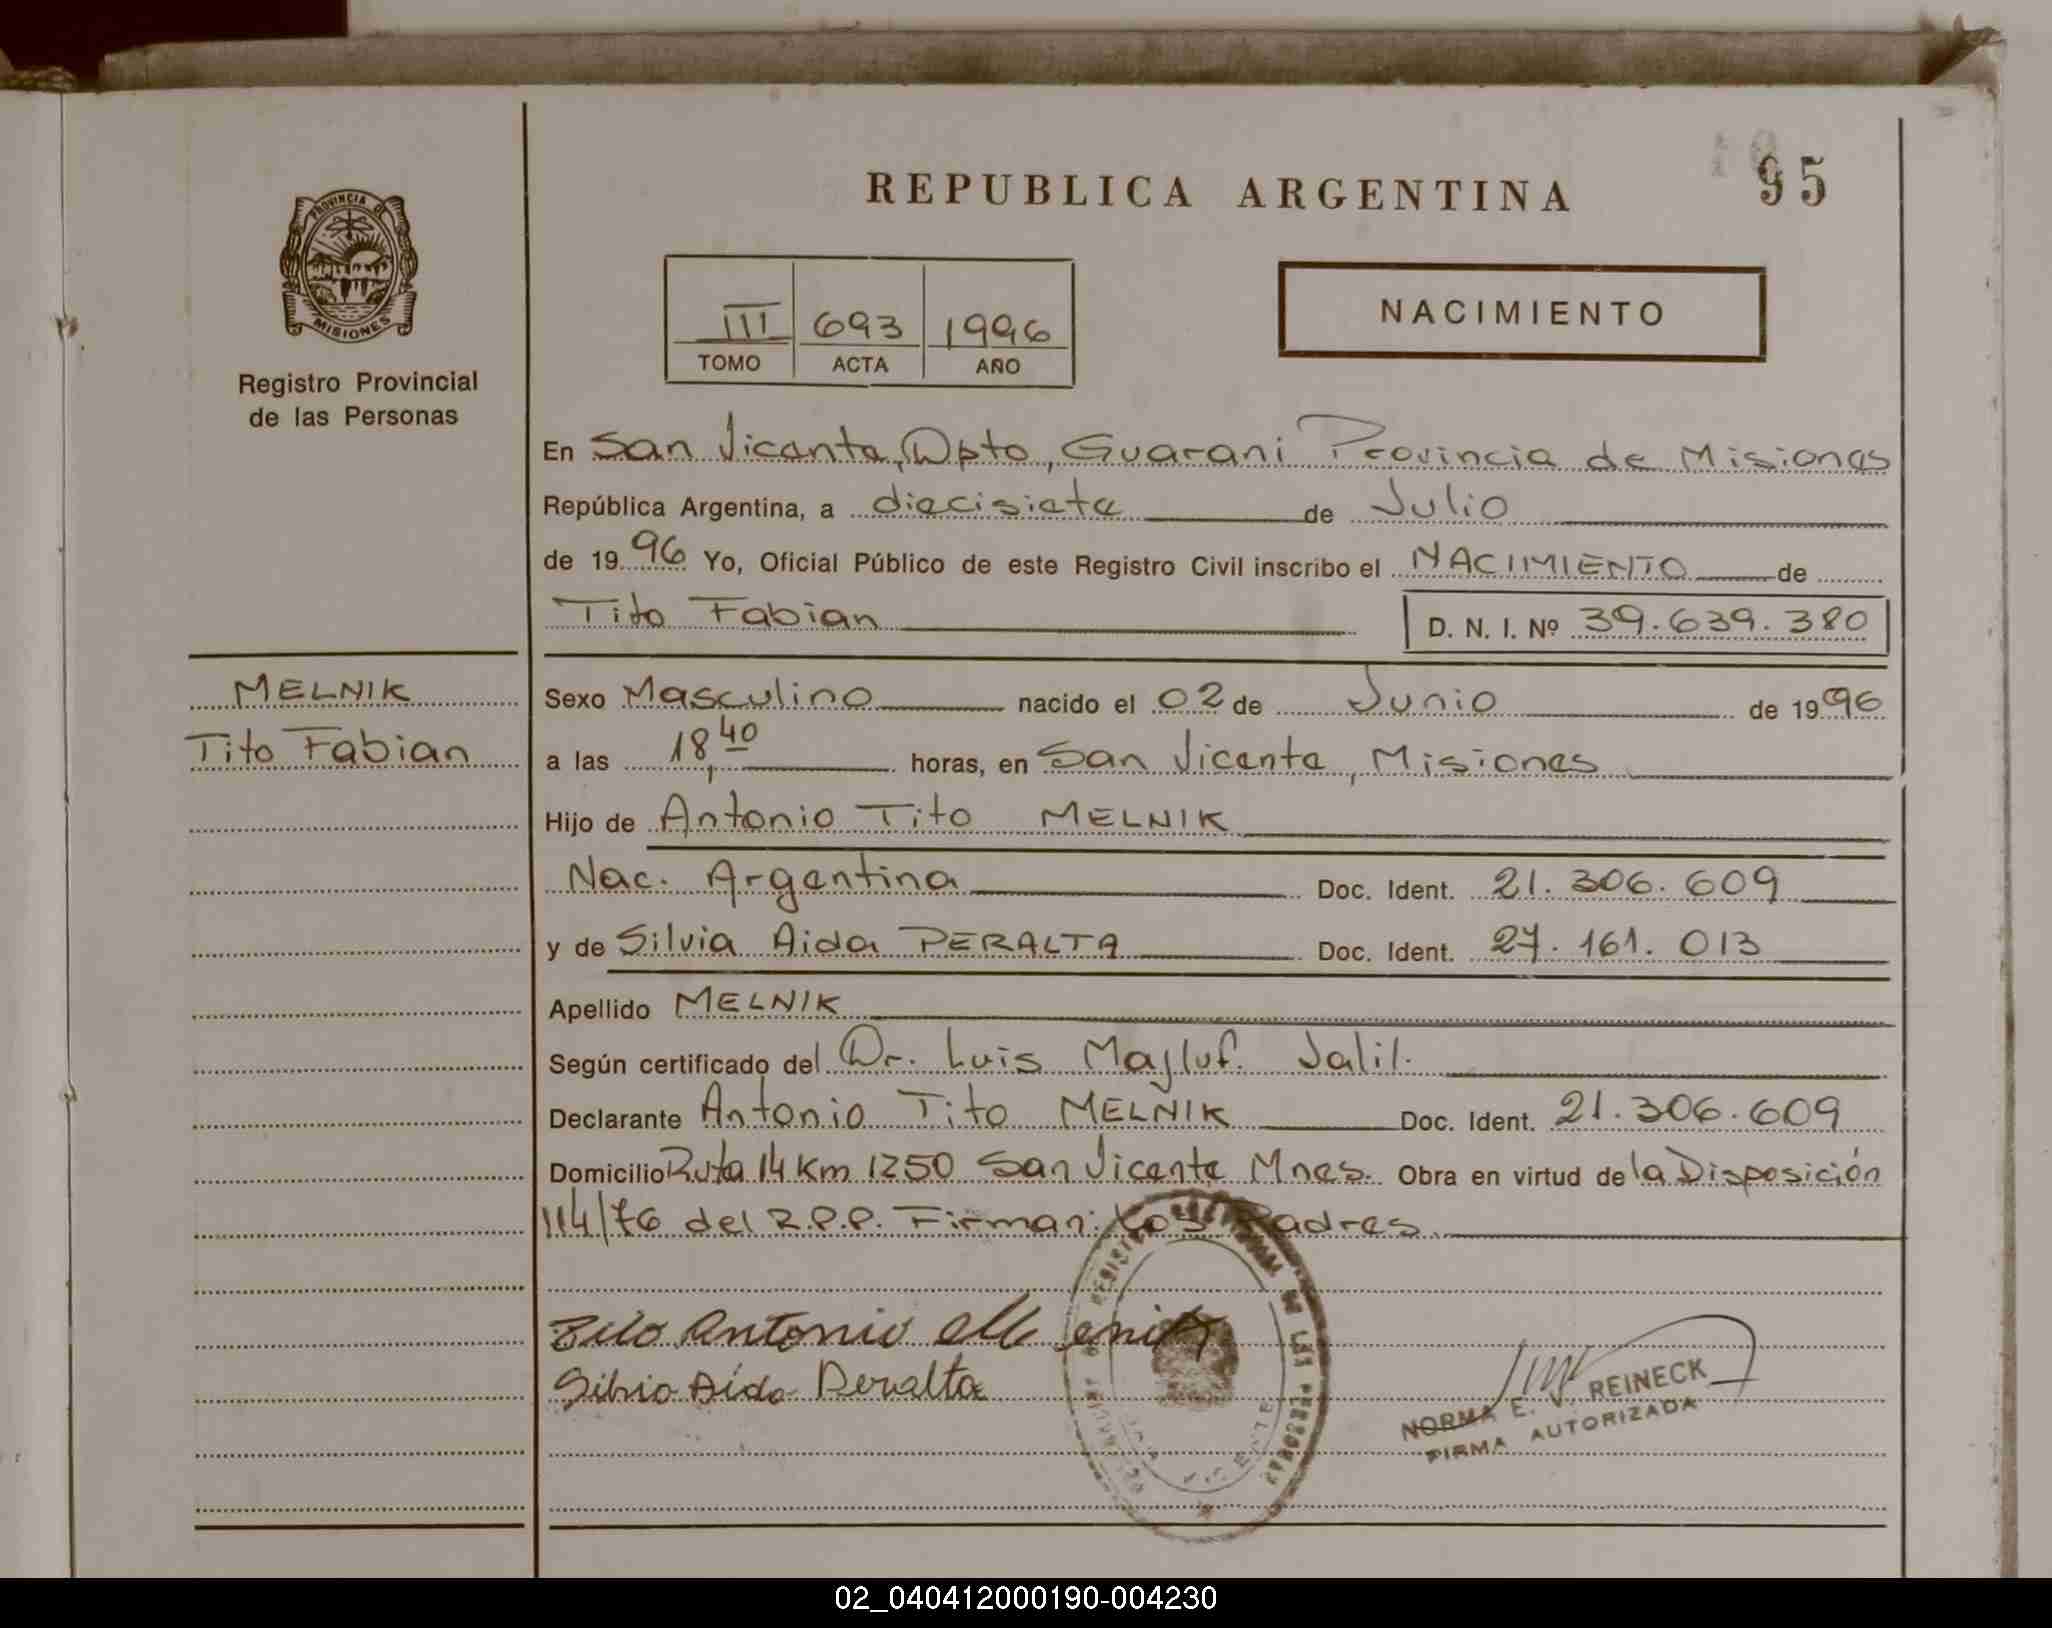 REPUBLICA ARGENTINA
95
PROVINCIA DE
MISIONES
Registro Provincial
de las Personas
III 693 1996
TOMO ACTA AÑO
NACIMIENTO
En San Vicente, Dpto, Guarani Provincia de Misiones
República Argentina, a diecisiete de Julio
de 1996 Yo, Oficial Público de este Registro Civil inscribo el NACIMIENTO de
Tito Fabian D. N. I. Nº 39.639.380
MELNIK
Tito Fabian
Sexo Masculino nacido el 02 de Junio de 1996
a las 18,40 horas, en San Vicente, Misiones
Hijo de Antonio Tito MELNIK
Nac. Argentina Doc. Ident. 21.306.609
y de Silvia Aida PERALTA Doc. Ident. 27.161.013
Apellido MELNIK
Según certificado del Dr. Luis Majluf. Jalil.
Declarante Antonio Tito MELNIK Doc. Ident. 21.306.609
Domicilio Ruta 14 Km 1250 San Vicente Mnes. Obra en virtud de la Disposición
114/76 del R.P.P. Firman: Los Padres
Tito Antonio Melenik
Silvia Aida Peralta
NORMA E. V. REINECK
FIRMA AUTORIZADA
02_040412000190-004230